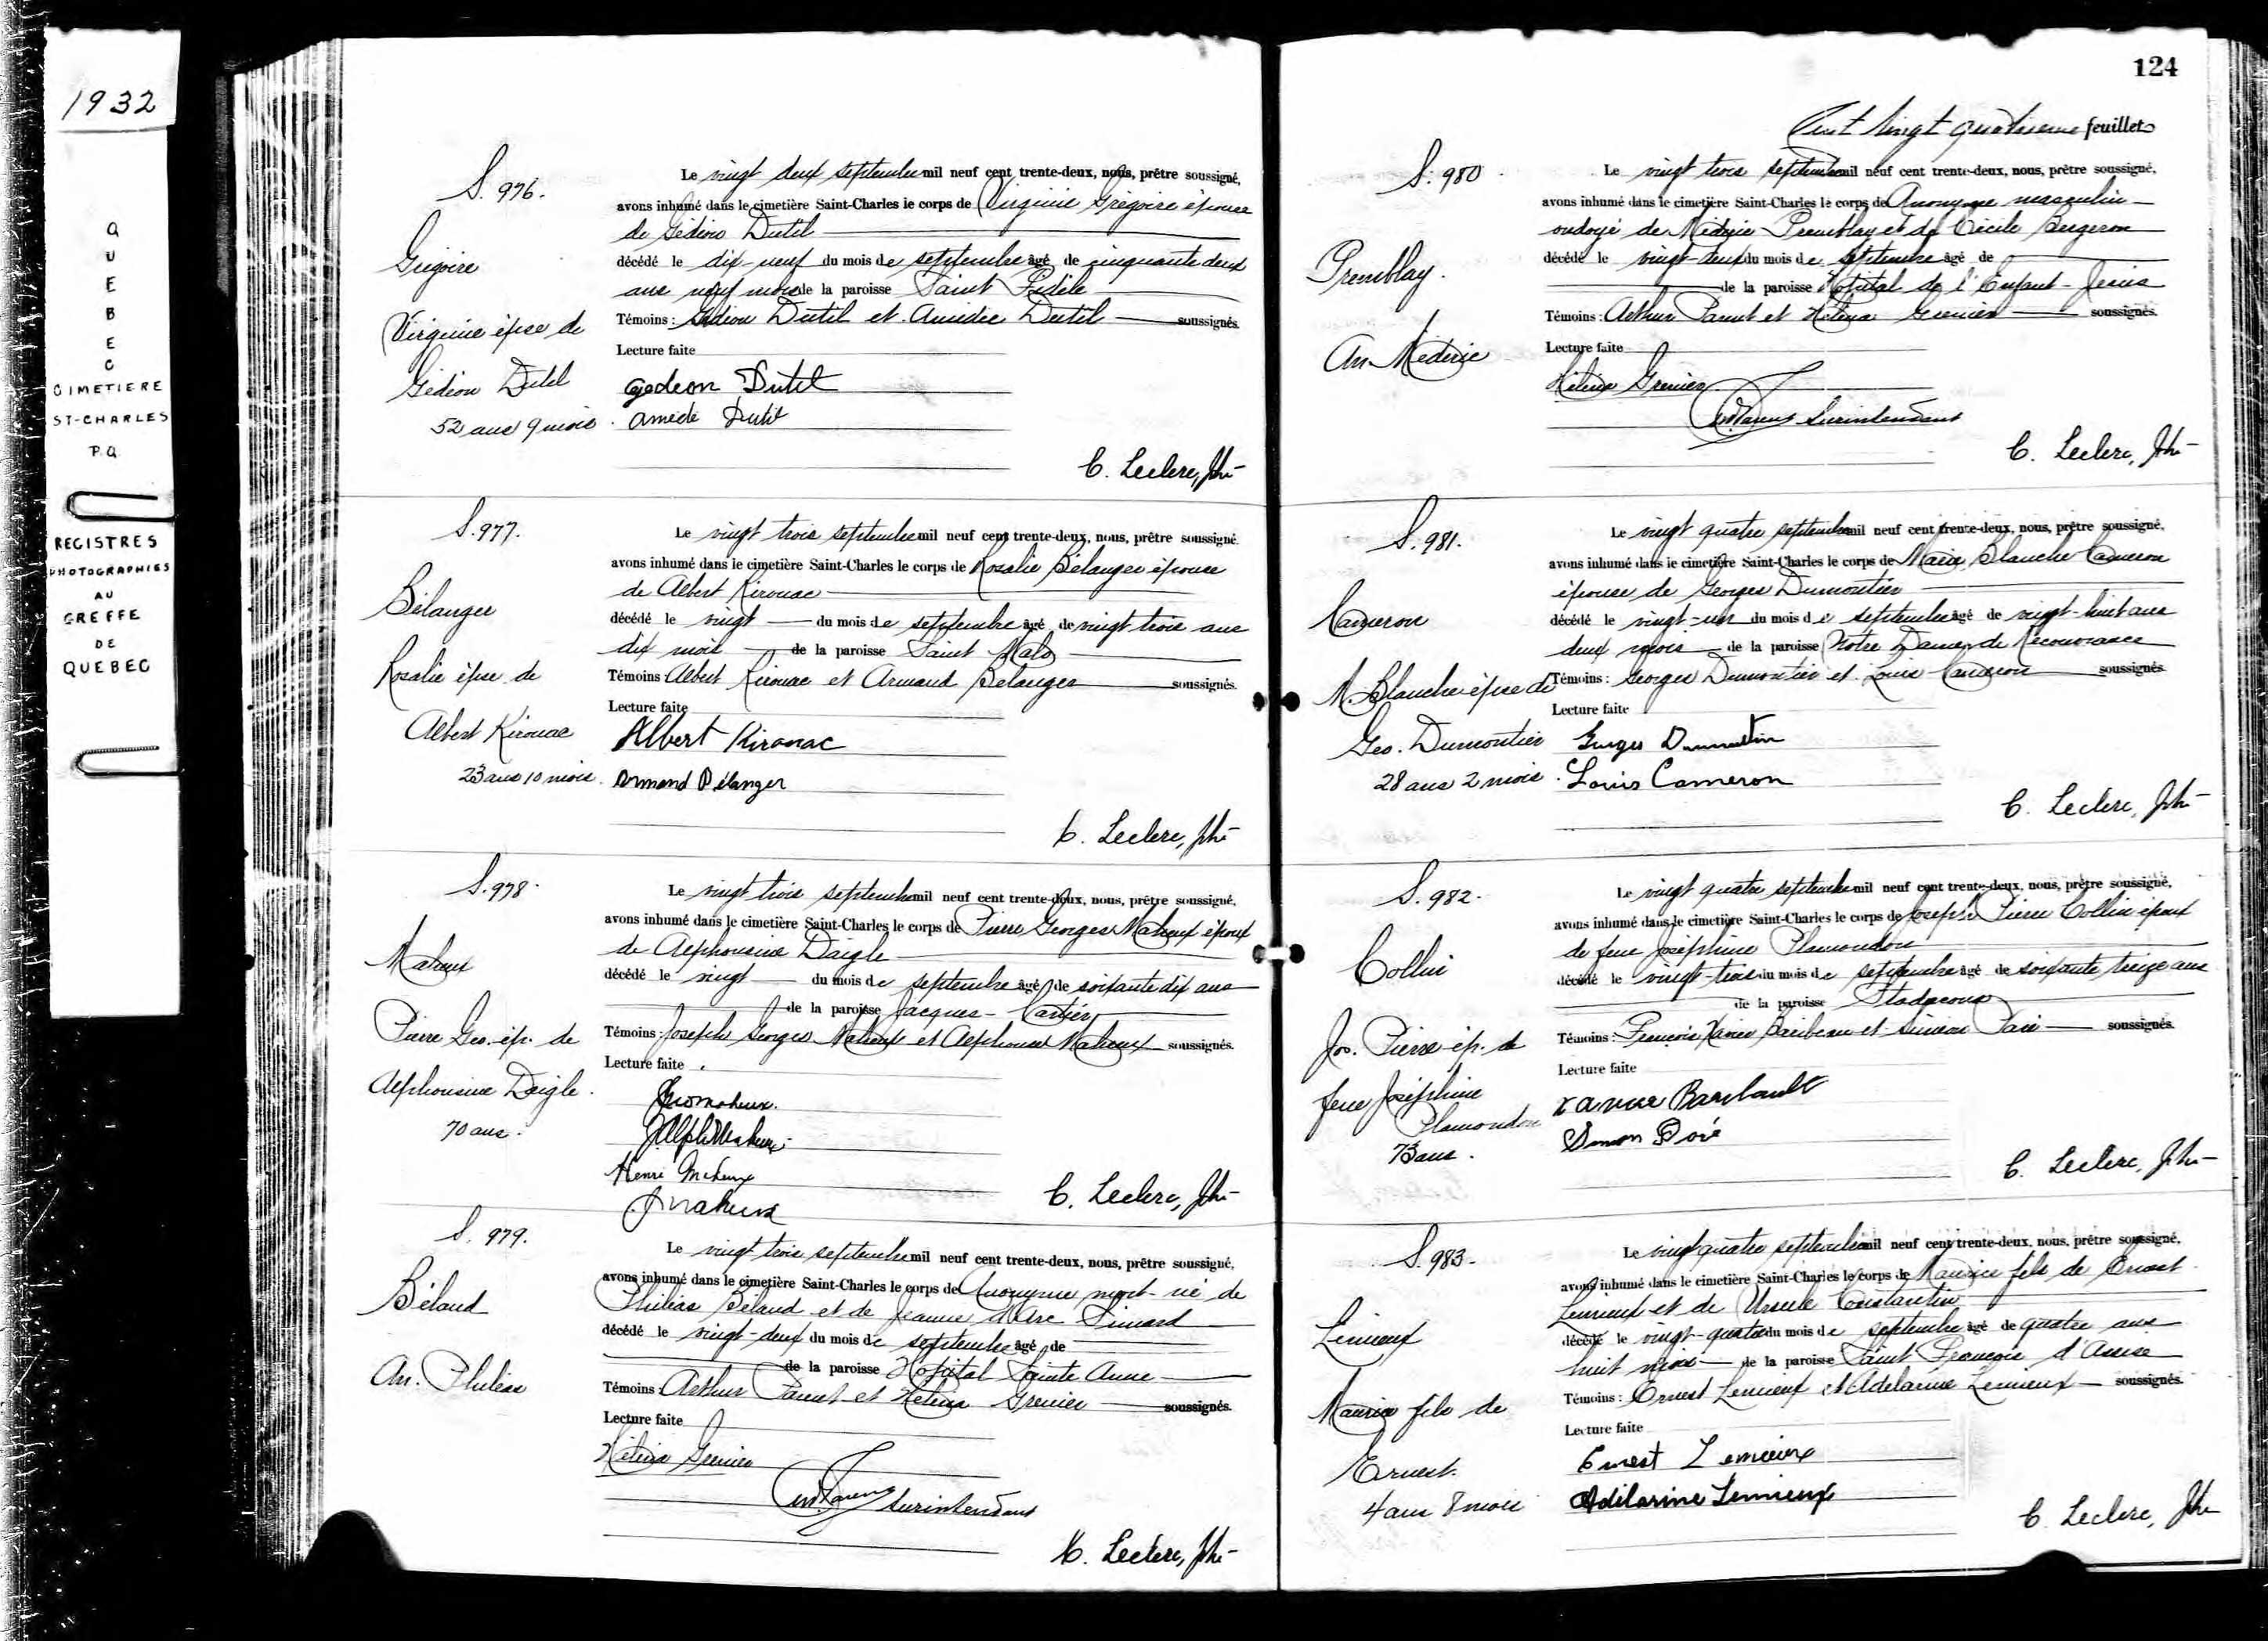 1932
QUEBEC
CIMETIERE
ST-CHARLES
P.Q.
REGISTRES
PHOTOGRAPHIES
AU
GREFFE
DE
QUEBEC
S. 976.
Grégoire
Virginie épse de
Gédéon Dutil
52 ans 9 mois.
Le vingt deux septembre mil neuf cent trente-deux, nous, prêtre soussigné,
avons inhumé dans le cimetière Saint-Charles le corps de Virginie Grégoire épouse
de Gédéon Dutil
décédé le dix-neuf du mois de septembre âgé de cinquante deux
ans neuf mois de la paroisse Saint Fidèle
Témoins: Gédéon Dutil et Amédée Dutil soussignés.
Lecture faite
Gedeon Dutil
Amédé Dutil
C. Leclerc, ptre
S. 977.
Bélanger
Rosalie épse de
Albert Kirouac
23 ans 10 mois.
Le vingt trois septembre mil neuf cent trente-deux, nous, prêtre soussigné.
avons inhumé dans le cimetière Saint-Charles le corps de Rosalie Bélanger épouse
de Albert Kirouac
décédé le vingt du mois de septembre âgé de vingt trois ans
dix mois de la paroisse Saint Malo
Témoins Albert Kirouac et Armand Bélanger soussignés.
Lecture faite
Albert Kirouac
Armand Bélanger
C. Leclerc, ptre
S. 978.
Maheux
Pierre Geo. ép. de
Alphonsine Daigle.
70 ans.
Le vingt trois septembre mil neuf cent trente-deux, nous, prêtre soussigné,
avons inhumé dans le cimetière Saint-Charles le corps de Pierre Georges Maheux époux
de Alphonsine Daigle
décédé le vingt du mois de septembre âgé de soixante dix ans
de la paroisse Jacques-Cartier
Témoins: Joseph Georges Maheux et Alphonse Maheux soussignés.
Lecture faite
Geo Maheux.
J Alph Maheux
Henri Maheux
J Maheux
C. Leclerc, ptre
S. 979.
Béland
An. Philéas
Le vingt trois septembre mil neuf cent trente-deux, nous, prêtre soussigné,
avons inhumé dans le cimetière Saint-Charles le corps de Anonyme mort-né de
Philéas Béland et de Jeanne d'Arc Simard
décédé le vingt-deux du mois de septembre âgé de
de la paroisse Hôpital Sainte Anne
Témoins: Arthur Parent et Hélèna Grenier soussignés.
Lecture faite
Hélèna Grenier
surintendant
C. Leclerc, ptre
124
Cent vingt quatrieme feuillet
S. 980
Tremblay.
An. Mederic
Le vingt trois septembre mil neuf cent trente-deux, nous, prêtre soussigné,
avons inhumé dans le cimetière Saint-Charles le corps de Anonyme masculin
ondoyé de Médéric Tremblay et de Cécile Bergeron
décédé le vingt-deux du mois de septembre âgé de
de la paroisse Hôpital de l'Enfant-Jésus
Témoins: Arthur Parent et Hélèna Grenier soussignés.
Lecture faite
Hélèna Grenier
Surintendant
C. Leclerc, ptre
S. 981.
Cameron
M. Blanche épse de
Geo. Dumontier
28 ans 2 mois.
Le vingt quatre septembre mil neuf cent trente-deux, nous, prêtre soussigné,
avons inhumé dans le cimetière Saint-Charles le corps de Marie Blanche Cameron
épouse de Georges Dumontier
décédé le vingt-un du mois de septembre âgé de vingt-huit ans
deux mois de la paroisse Notre Dame de Recouvrance
Témoins: Georges Dumontier et Louis Cameron soussignés
Lecture faite
Georges Dumontier
Louis Cameron
C. Leclerc, ptre
S. 982.
Collin
Jos. Pierre ép. de
feue Joséphine
Plamondon
73 ans.
Le vingt quatre septembre mil neuf cent trente-deux, nous, prêtre soussigné,
avons inhumé dans le cimetière Saint-Charles le corps de Joseph Pierre Collin époux
de feue Joséphine Plamondon
décédé le vingt-trois du mois de septembre âgé de soixante treize ans
de la paroisse Stadacona
Témoins: François Xavier Baribeau et Siméon Paré soussignés.
Lecture faite
Xavier
C. Leclerc, ptre
S. 983.
Lemieux
Maurice fils de
Ernest.
4 ans 8 mois
Le vingt quatre septembre mil neuf cent trente-deux, nous, prêtre soussigné,
avons inhumé dans le cimetière Saint-Charles le corps de Maurice fils de Ernest
Lemieux et de Ursule Constantin
décédé le vingt-quatre du mois de septembre âgé de quatre ans
huit mois de la paroisse Saint François d'Assise
Témoins: Ernest Lemieux et Adélarine Lemieux soussignés.
Lecture faite
Ernest Lemieux
Adélarine Lemieux
C. Leclerc, ptre